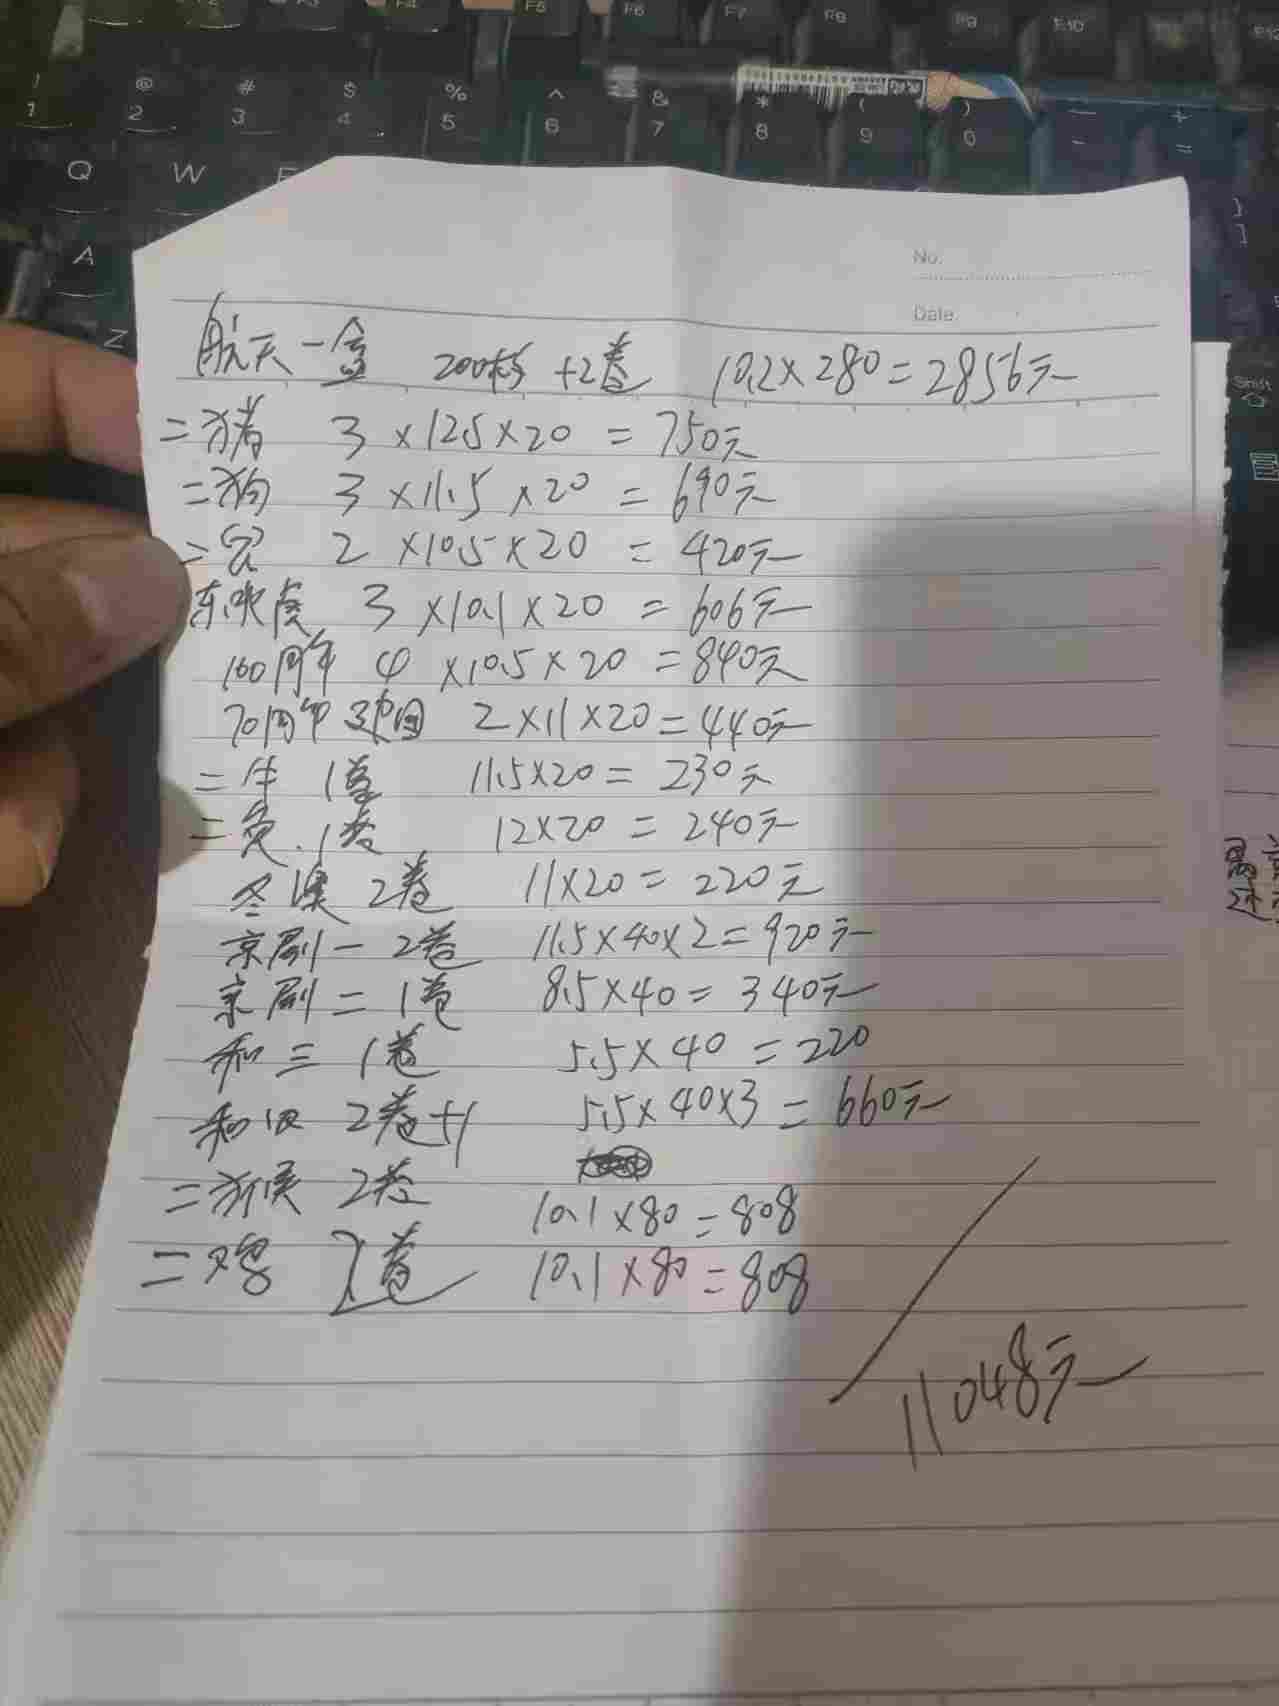 F5 F6 F7 F8 F9 F10
! @ # $ % ^ & * ( ) — +
1 2 3 4 5 6 7 8 9 0 - =
Q W
A
Z
Shift
No.
Date
航天一盒 200枚+2卷 10.2×280=2856元
二猪 3×12.5×20=750元
二狗 3×11.5×20=690元
2×10.5×20=420元
3×10.1×20=606元
100周年 4×10.5×20=840元
70周年建国 2×11×20=440元
二牛 1卷 11.5×20=230元
1卷 12×20=240元
冬奥 2卷 11×20=220元
京剧一 2卷 11.5×40×2=920元
京剧二 1卷 8.5×40=340元
和三 1卷 5.5×40=220
和四 2卷+1 5.5×40×3=660元
二猴 2卷 10.1×80=808
二鸡 2卷 10.1×80=808
11048元